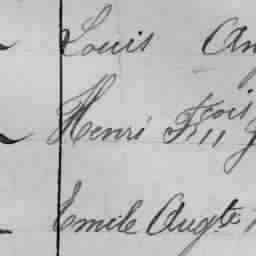 Louis An
Henri Fçois
Emile Augte